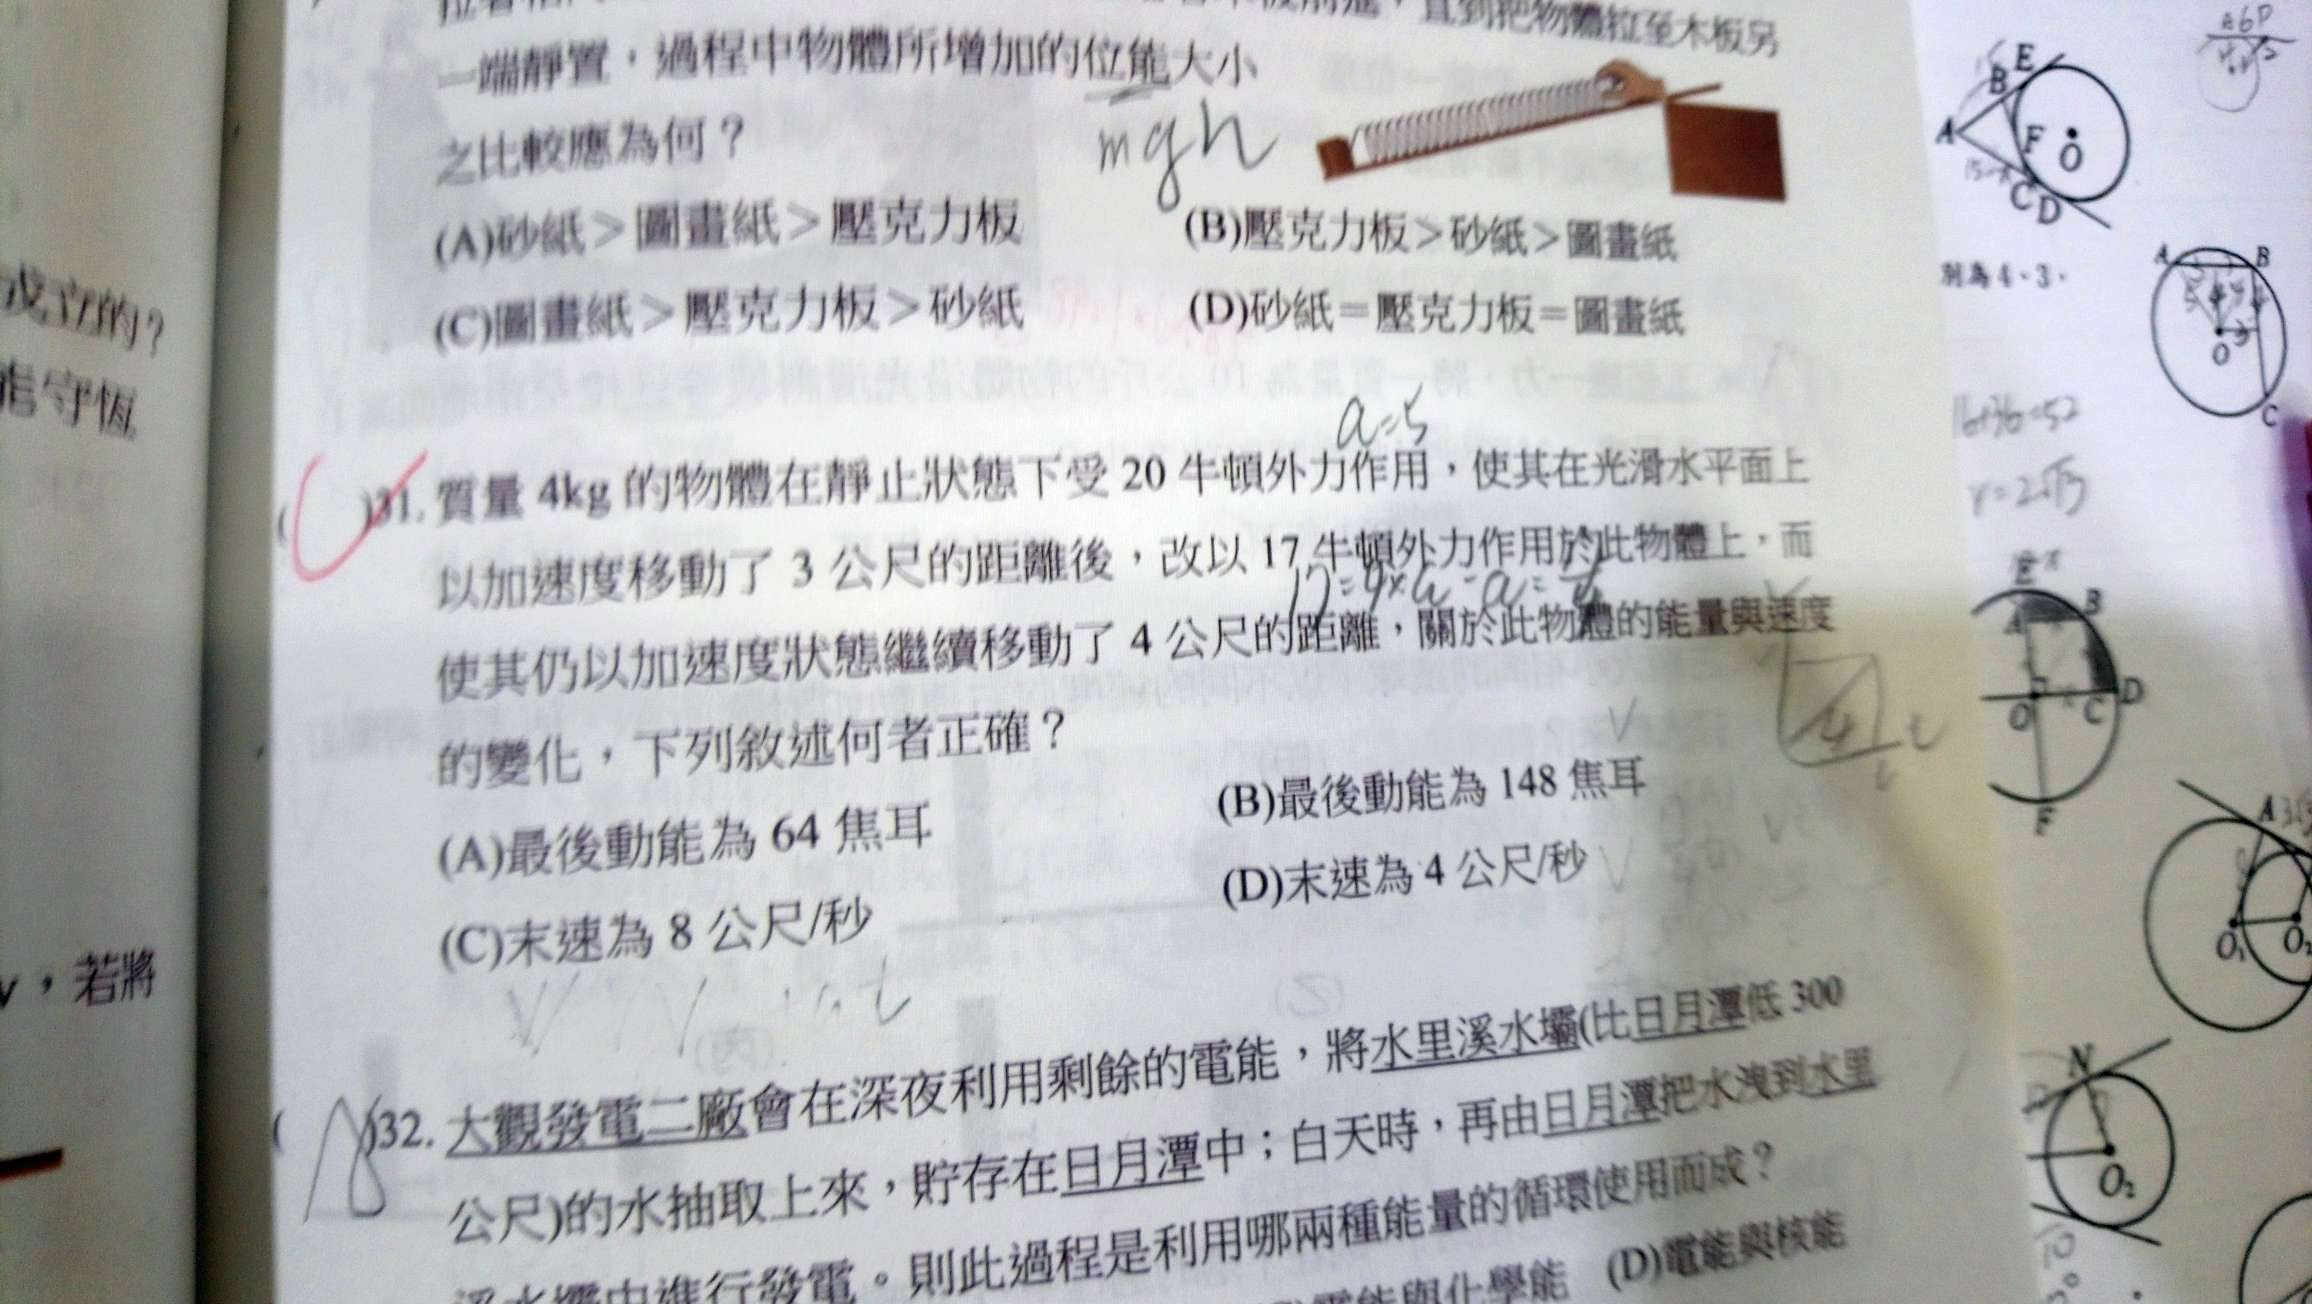 直到把物體拉至木板另
一端靜置，過程中物體所增加的位能大小
之比較應為何？
mgh
(A)砂紙＞圖畫紙＞壓克力板
(B)壓克力板＞砂紙＞圖畫紙
(C)圖畫紙＞壓克力板＞砂紙
(D)砂紙＝壓克力板＝圖畫紙
a=5
( )31. 質量 4kg 的物體在靜止狀態下受 20 牛頓外力作用，使其在光滑水平面上
以加速度移動了 3 公尺的距離後，改以 17 牛頓外力作用於此物體上，而
使其仍以加速度狀態繼續移動了 4 公尺的距離，關於此物體的能量與速度
的變化，下列敘述何者正確？
(A)最後動能為 64 焦耳
(B)最後動能為 148 焦耳
(C)末速為 8 公尺/秒
(D)末速為 4 公尺/秒
( )32. 大觀發電二廠會在深夜利用剩餘的電能，將水里溪水壩(比日月潭低 300
公尺)的水抽取上來，貯存在日月潭中；白天時，再由日月潭把水洩到水里
溪水壩中進行發電。則此過程是利用哪兩種能量的循環使用而成？
電能與化學能
(D)電能與核能
成立的？
能守恆
v，若將
E
B
A
F
O
C
D
別為 4、3，
A
B
O
C
16+36=52
r=2√13
E
B
A
O
C
D
F
A
O₁
O₂
N
O₂